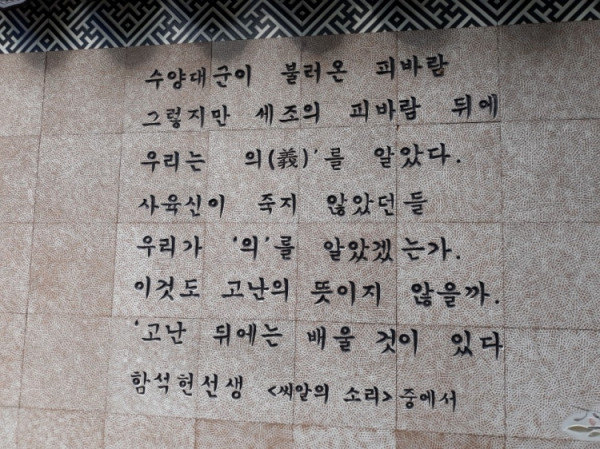 수양대군이 불러온 피바람
그렇지만 세조의 피바람 뒤에
우리는 의(義)'를 알았다.
사육신이 죽지 않았던들
우리가 '의'를 알았겠는가.
이것도 고난의 뜻이지 않을까.
'고난 뒤에는 배울 것이 있다
함석헌선생 <씨알의 소리> 중에서